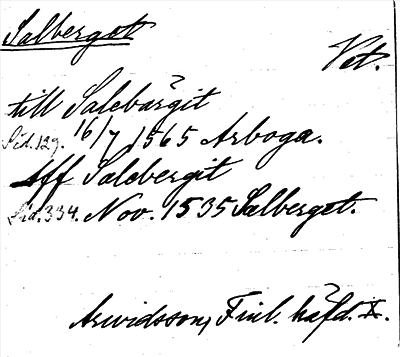 Salberget
Vet.
till Salebärgit
Sid. 129. 16/7 1565 Arboga.
Aff Salebergit
Sid. 334. Nov. 1535 Salberget.
Arwidsson, Finl. häfd. X.